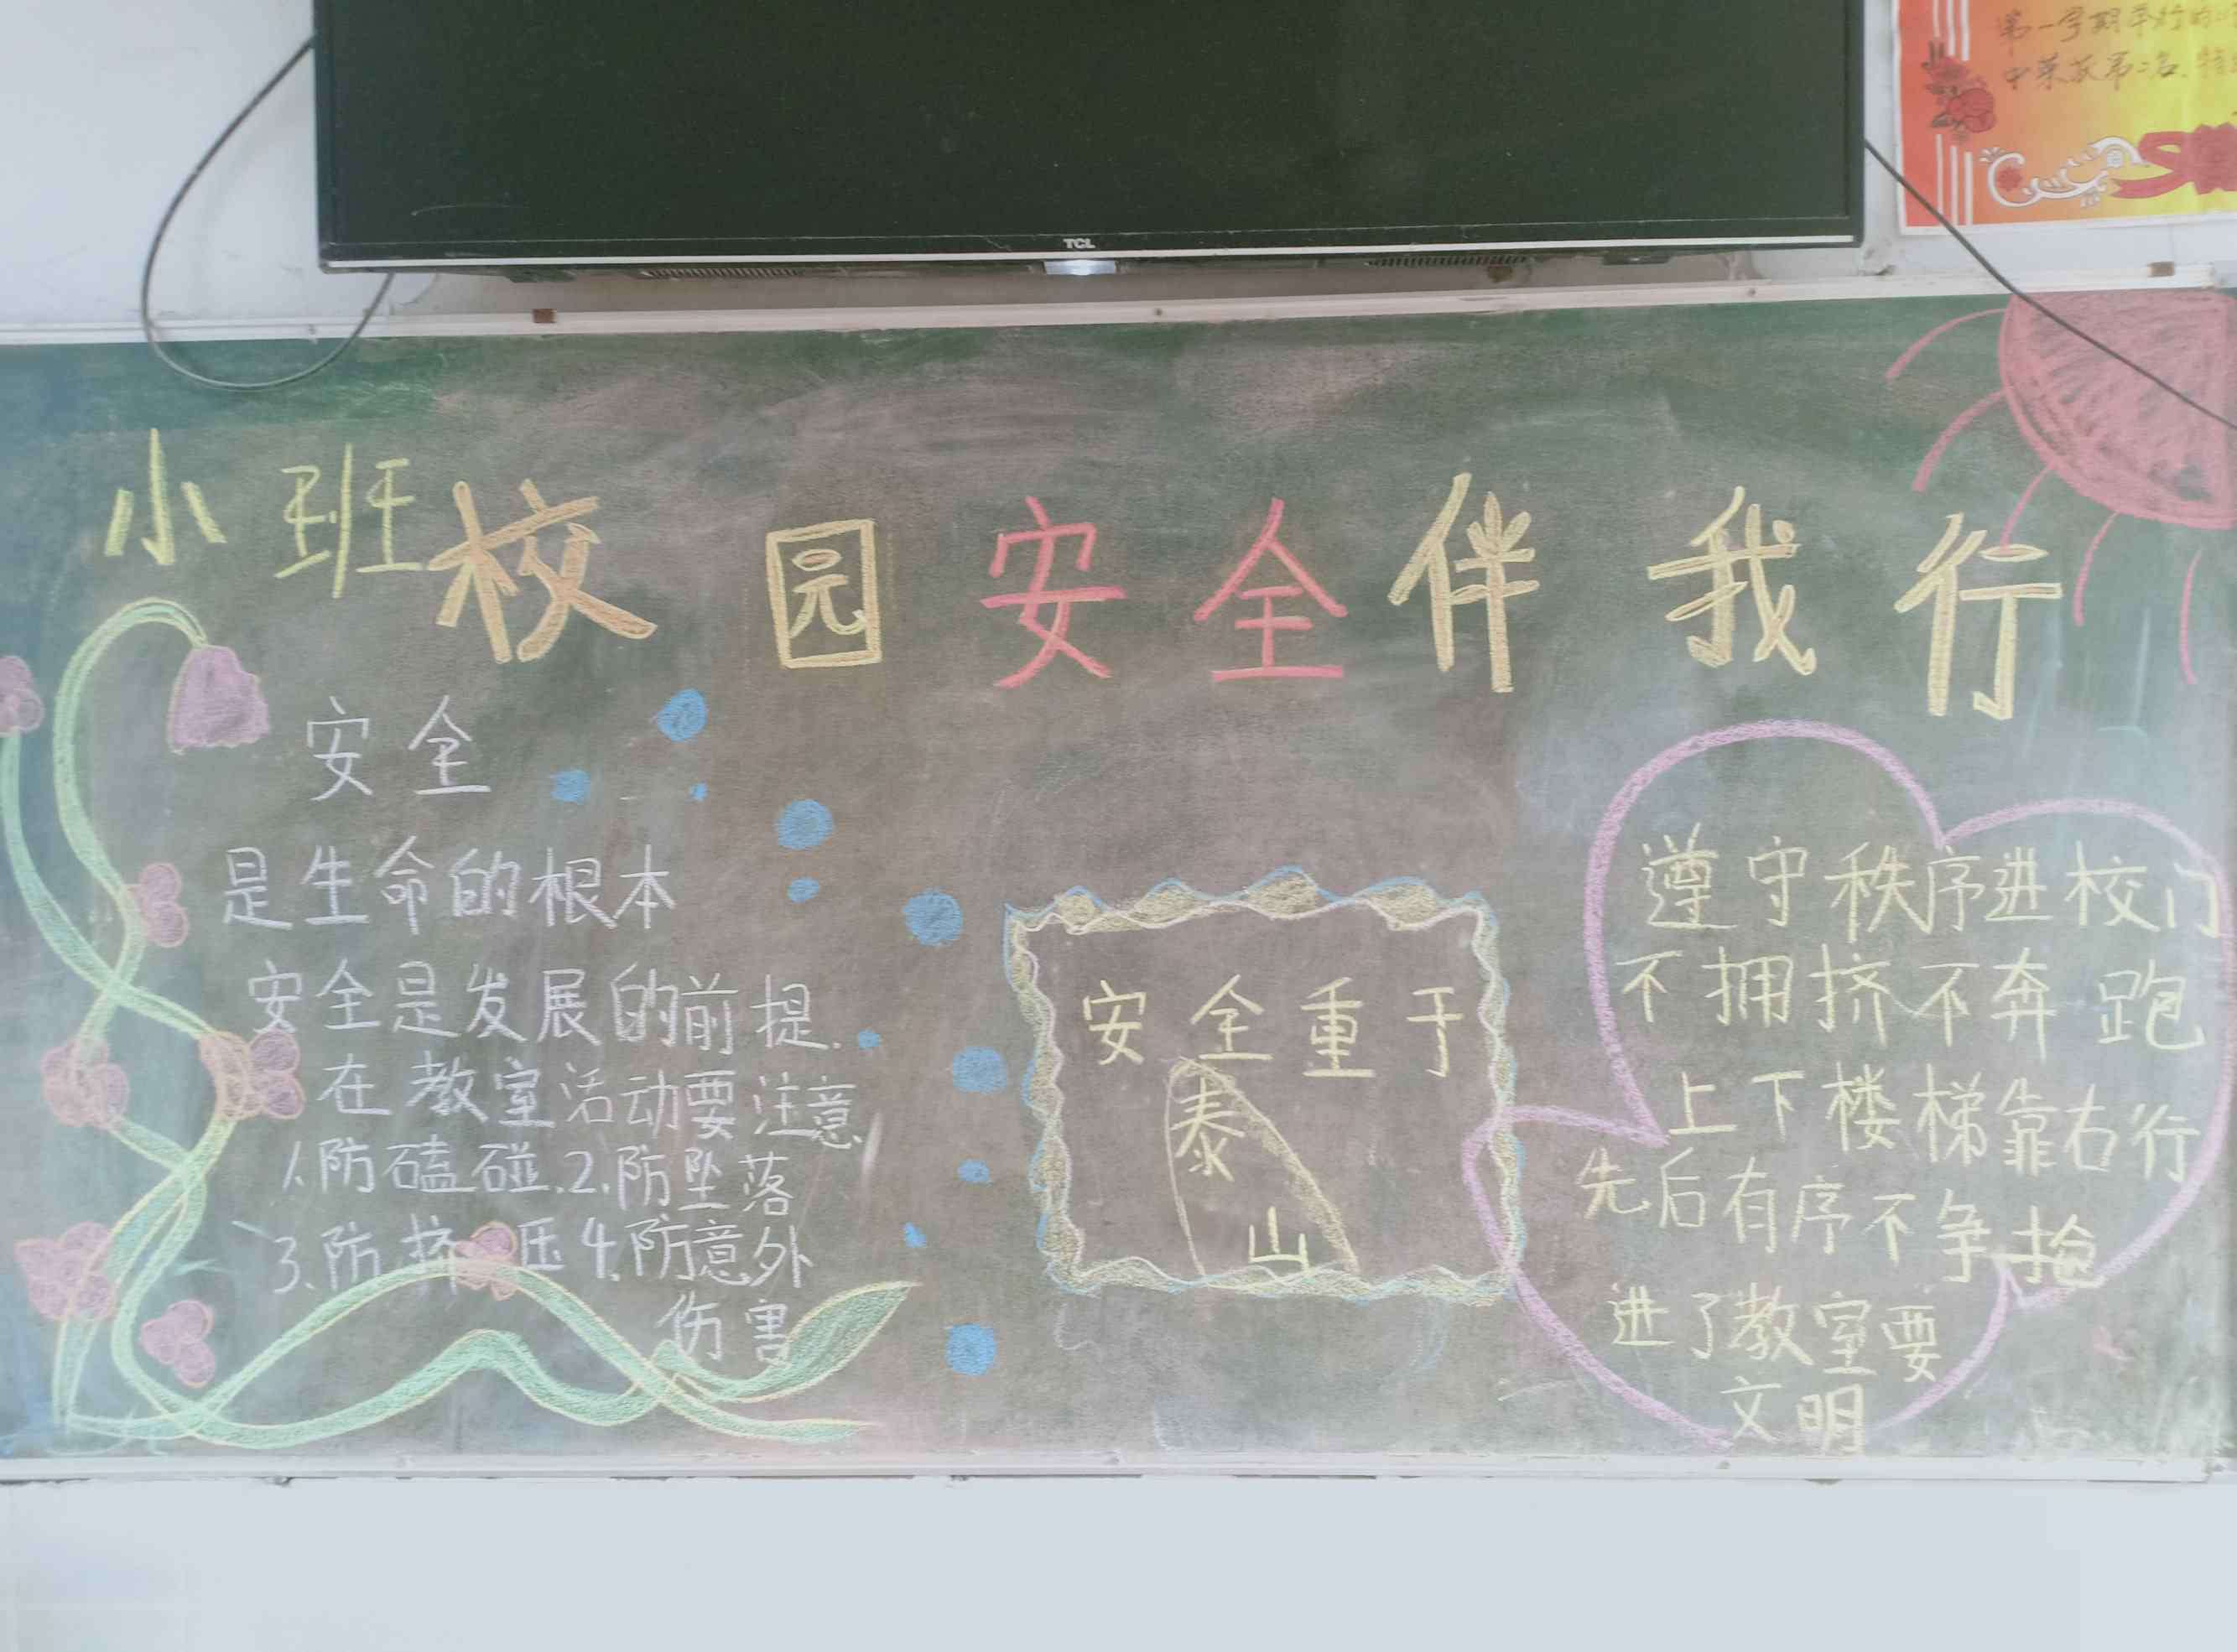 第一学期举行的
中荣获第二名.特
TCL
小班校园安全伴我行
安全
是生命的根本
安全是发展的前提.
在教室活动要注意
1.防磕碰.2.防坠落
3.防挤压4.防意外
伤害
安全重于
泰
山
遵守秩序进校门
不拥挤不奔跑
上下楼梯靠右行
先后有序不争抢
进了教室要
文明